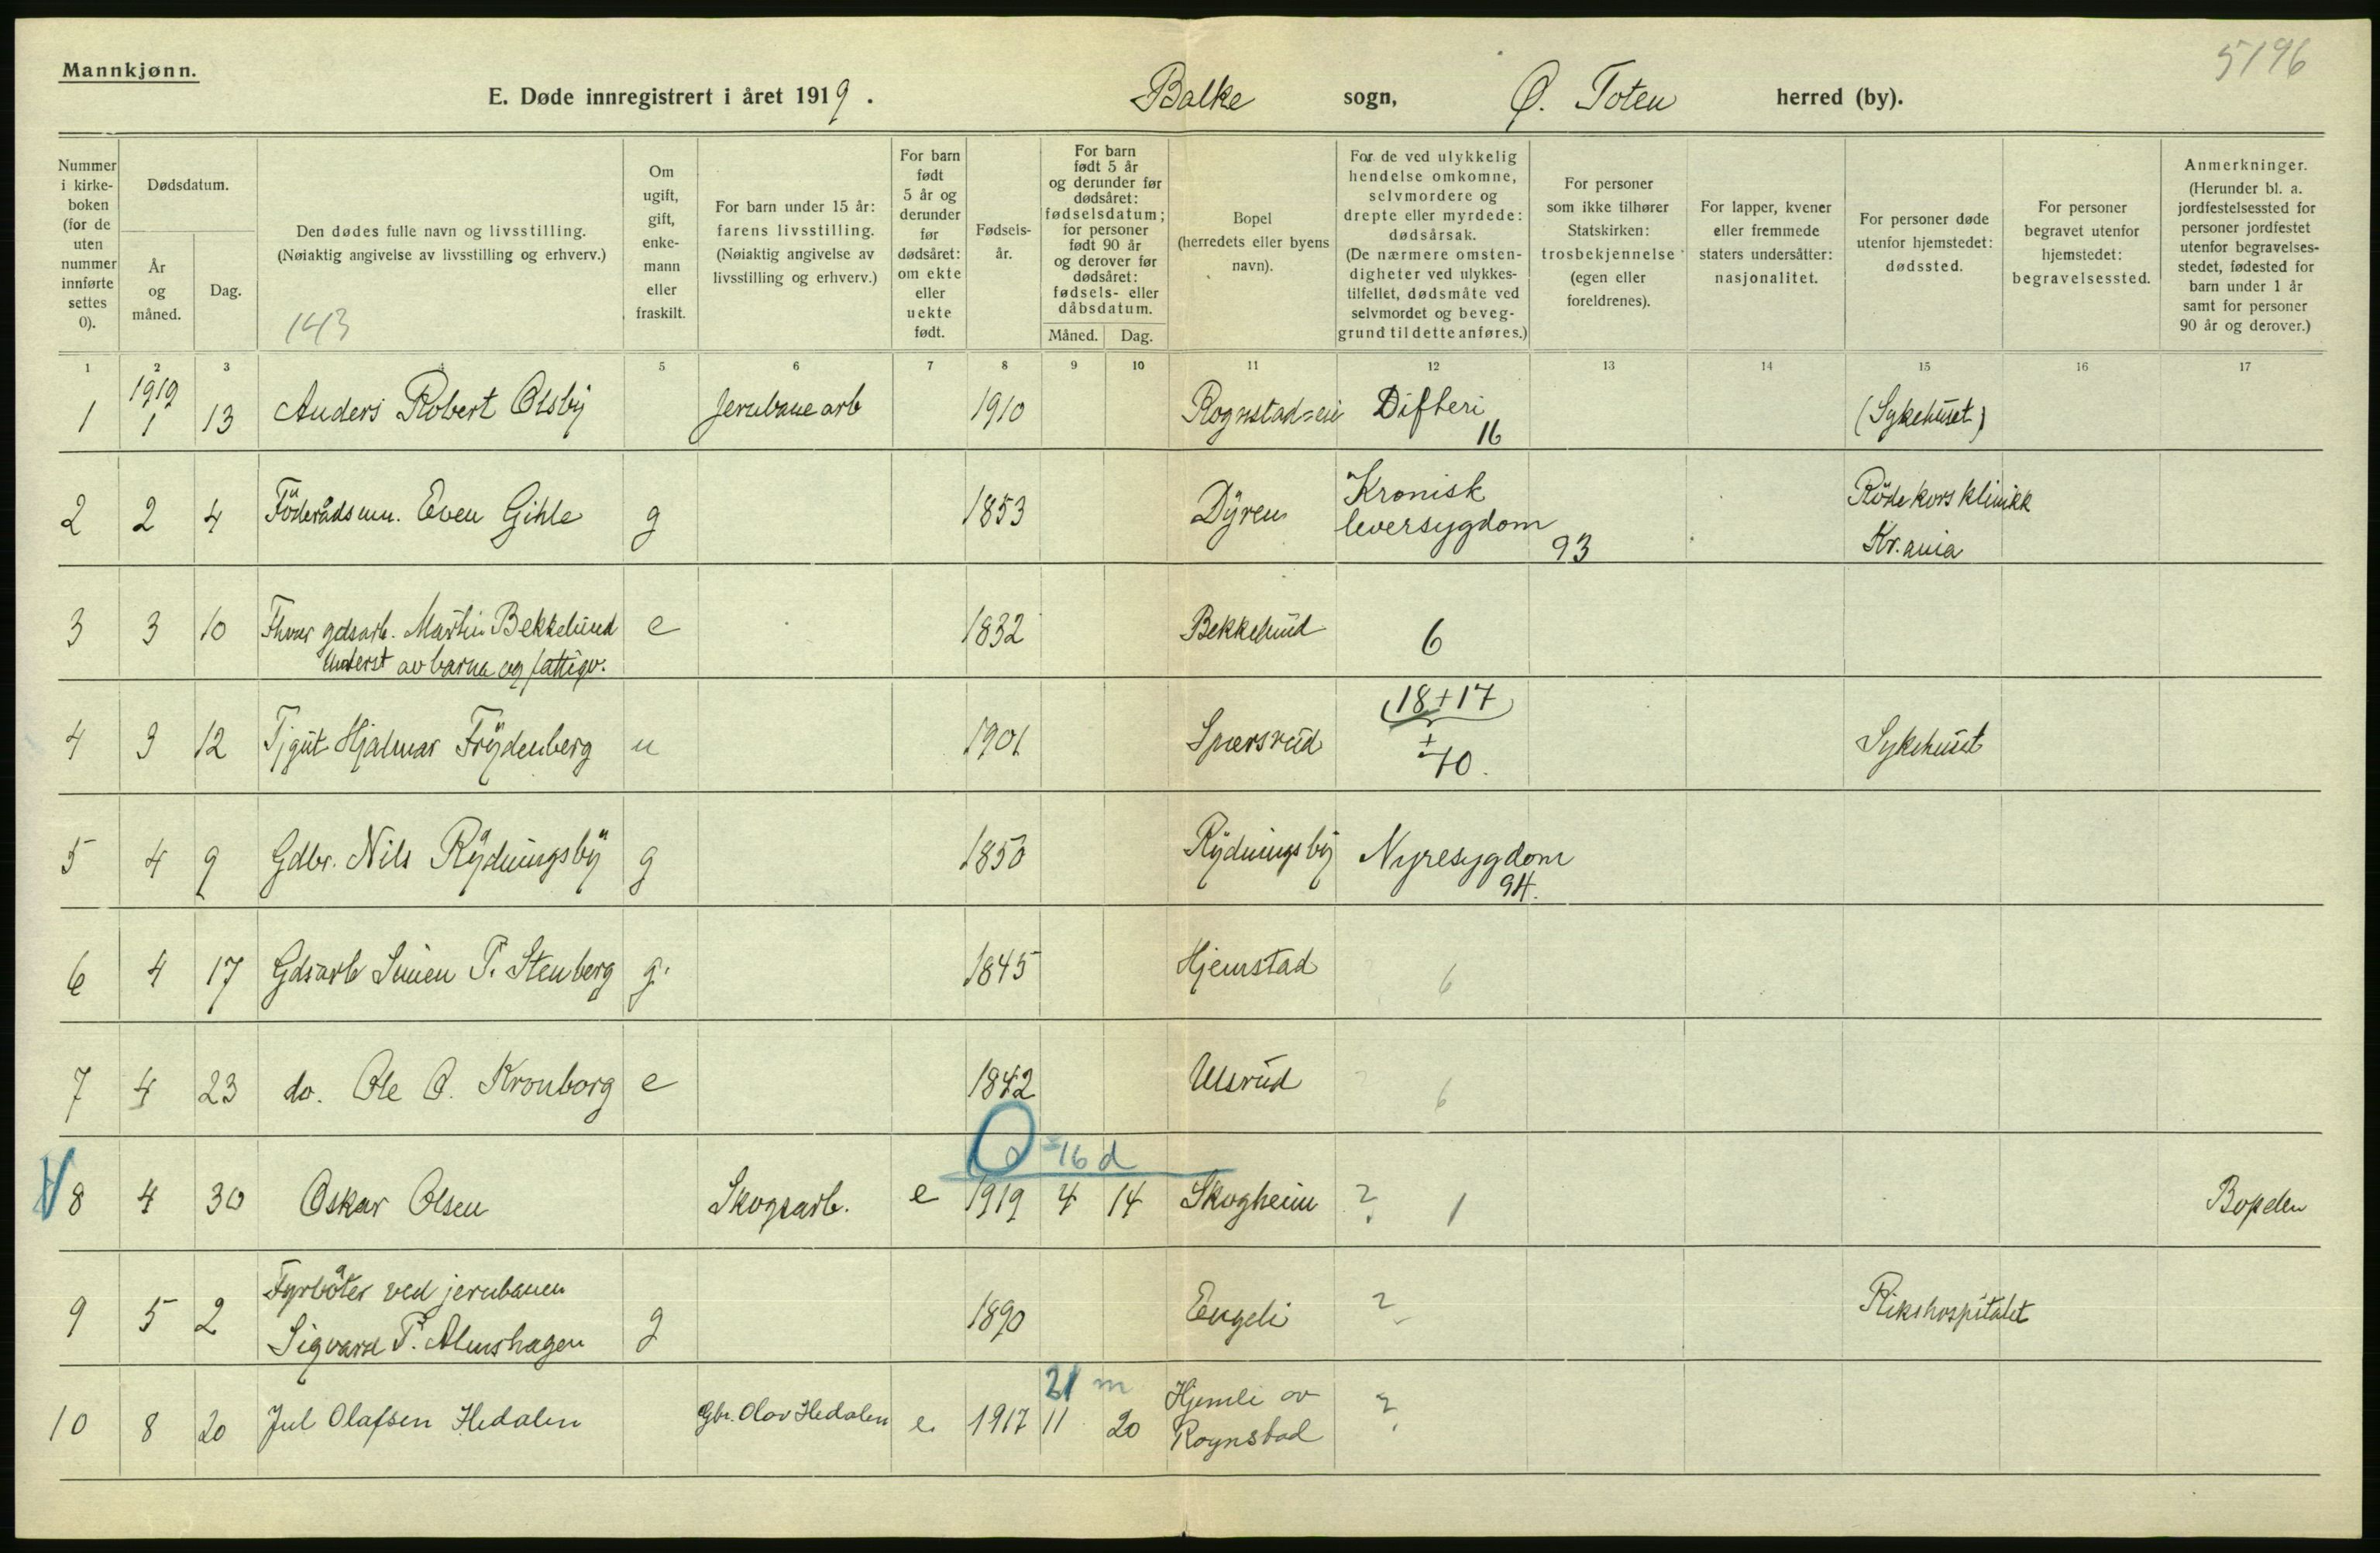 5196
Mannkjønn.
E. Døde innregistrert i året 1919. Balke sogn, Ø. Toten herred (by).
Nummer i kirke-boken (for de uten nummer innførte settes 0).
Dødsdatum.
År og måned.
Dag.
Den dødes fulle navn og livsstilling.
(Nøiaktig angivelse av livsstilling og erhverv.)
143
Om ugift, gift, enke-mann eller fraskilt.
For barn under 15 år: farens livsstilling.
(Nøiaktig angivelse av livsstilling og erhverv.)
For barn født 5 år og derunder før dødsåret: om ekte eller uekte født.
Fødsels-år.
For barn født 5 år og derunder før dødsåret: fødselsdatum; for personer født 90 år og derover før dødsåret: fødsels- eller dåbsdatum.
Måned. Dag.
Bopel (herredets eller byens navn).
For de ved ulykkelig hendelse omkomne, selvmordere og drepte eller myrdede: dødsårsak.
(De nærmere omsten-digheter ved ulykkes-tilfellet, dødsmåte ved selvmordet og beveg-grund til dette anføres.)
For personer som ikke tilhører Statskirken: trosbekjennelse (egen eller foreldrenes).
For lapper, kvener eller fremmede staters undersåtter: nasjonalitet.
For personer døde utenfor hjemstedet: dødssted.
For personer begravet utenfor hjemstedet: begravelsessted.
Anmerkninger.
(Herunder bl. a. jordfestelsessted for personer jordfestet utenfor begravelses-stedet, fødested for barn under 1 år samt for personer 90 år og derover.)
1 2 3 4 5 6 7 8 9 10 11 12 13 14 15 16 17
1919
1 1 13 Anders Robert Olsby Jernbanearb 1910 Rognstad=ei Difteri (Sykehuset)
16
2 2 4 Föderådsmn. Even Gihle g 1853 Dyren Kronisk leversygdom Röde kors klinikk
93 Kr.ania
3 3 10 Fhvær gdsarb. Martin Bekkelund e 1832 Bekkelund 6
Underst av barna og fattigv.
18+17
4 3 12 Tjgut Hjalmar Frydenberg u 1901 Spærsrud ± 70. Sykehuset
5 4 9 Gdbr. Nils Rydningsby g 1850 Rydningsby Nyresygdom
94.
6 4 17 Gdsarb Simen P. Stenberg g. 1845 Hjemstad 6
7 4 23 do. Ole O. Kronborg e 1842 Ulsrud 6
0 = 16 d
8 4 30 Oskar Olsen Skogsarb. e 1919 4 14 Skogheim ? 1 Bopelen
9 5 2 Fyrböter ved jernbanen
Sigvard P. Almshagen g 1890 Engeli ? Rikshospitalet
21 m
10 8 20 Jul Olafsen Hedalen Gbr. Olav Hedalen e. 1917 11 20 Hjemli av ?
Rognstad